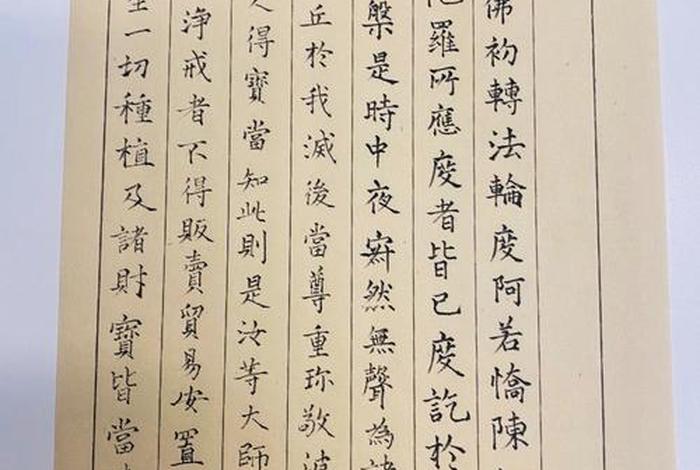 佛初轉法輪度阿若憍陳
羅所應度者皆已度訖於
槃是時中夜寂然無聲為諸
丘於我滅後當尊重珍敬波
得寶當知此則是汝等大師
淨戒者不得販賣貿易安置
一切種植及諸財寶皆當